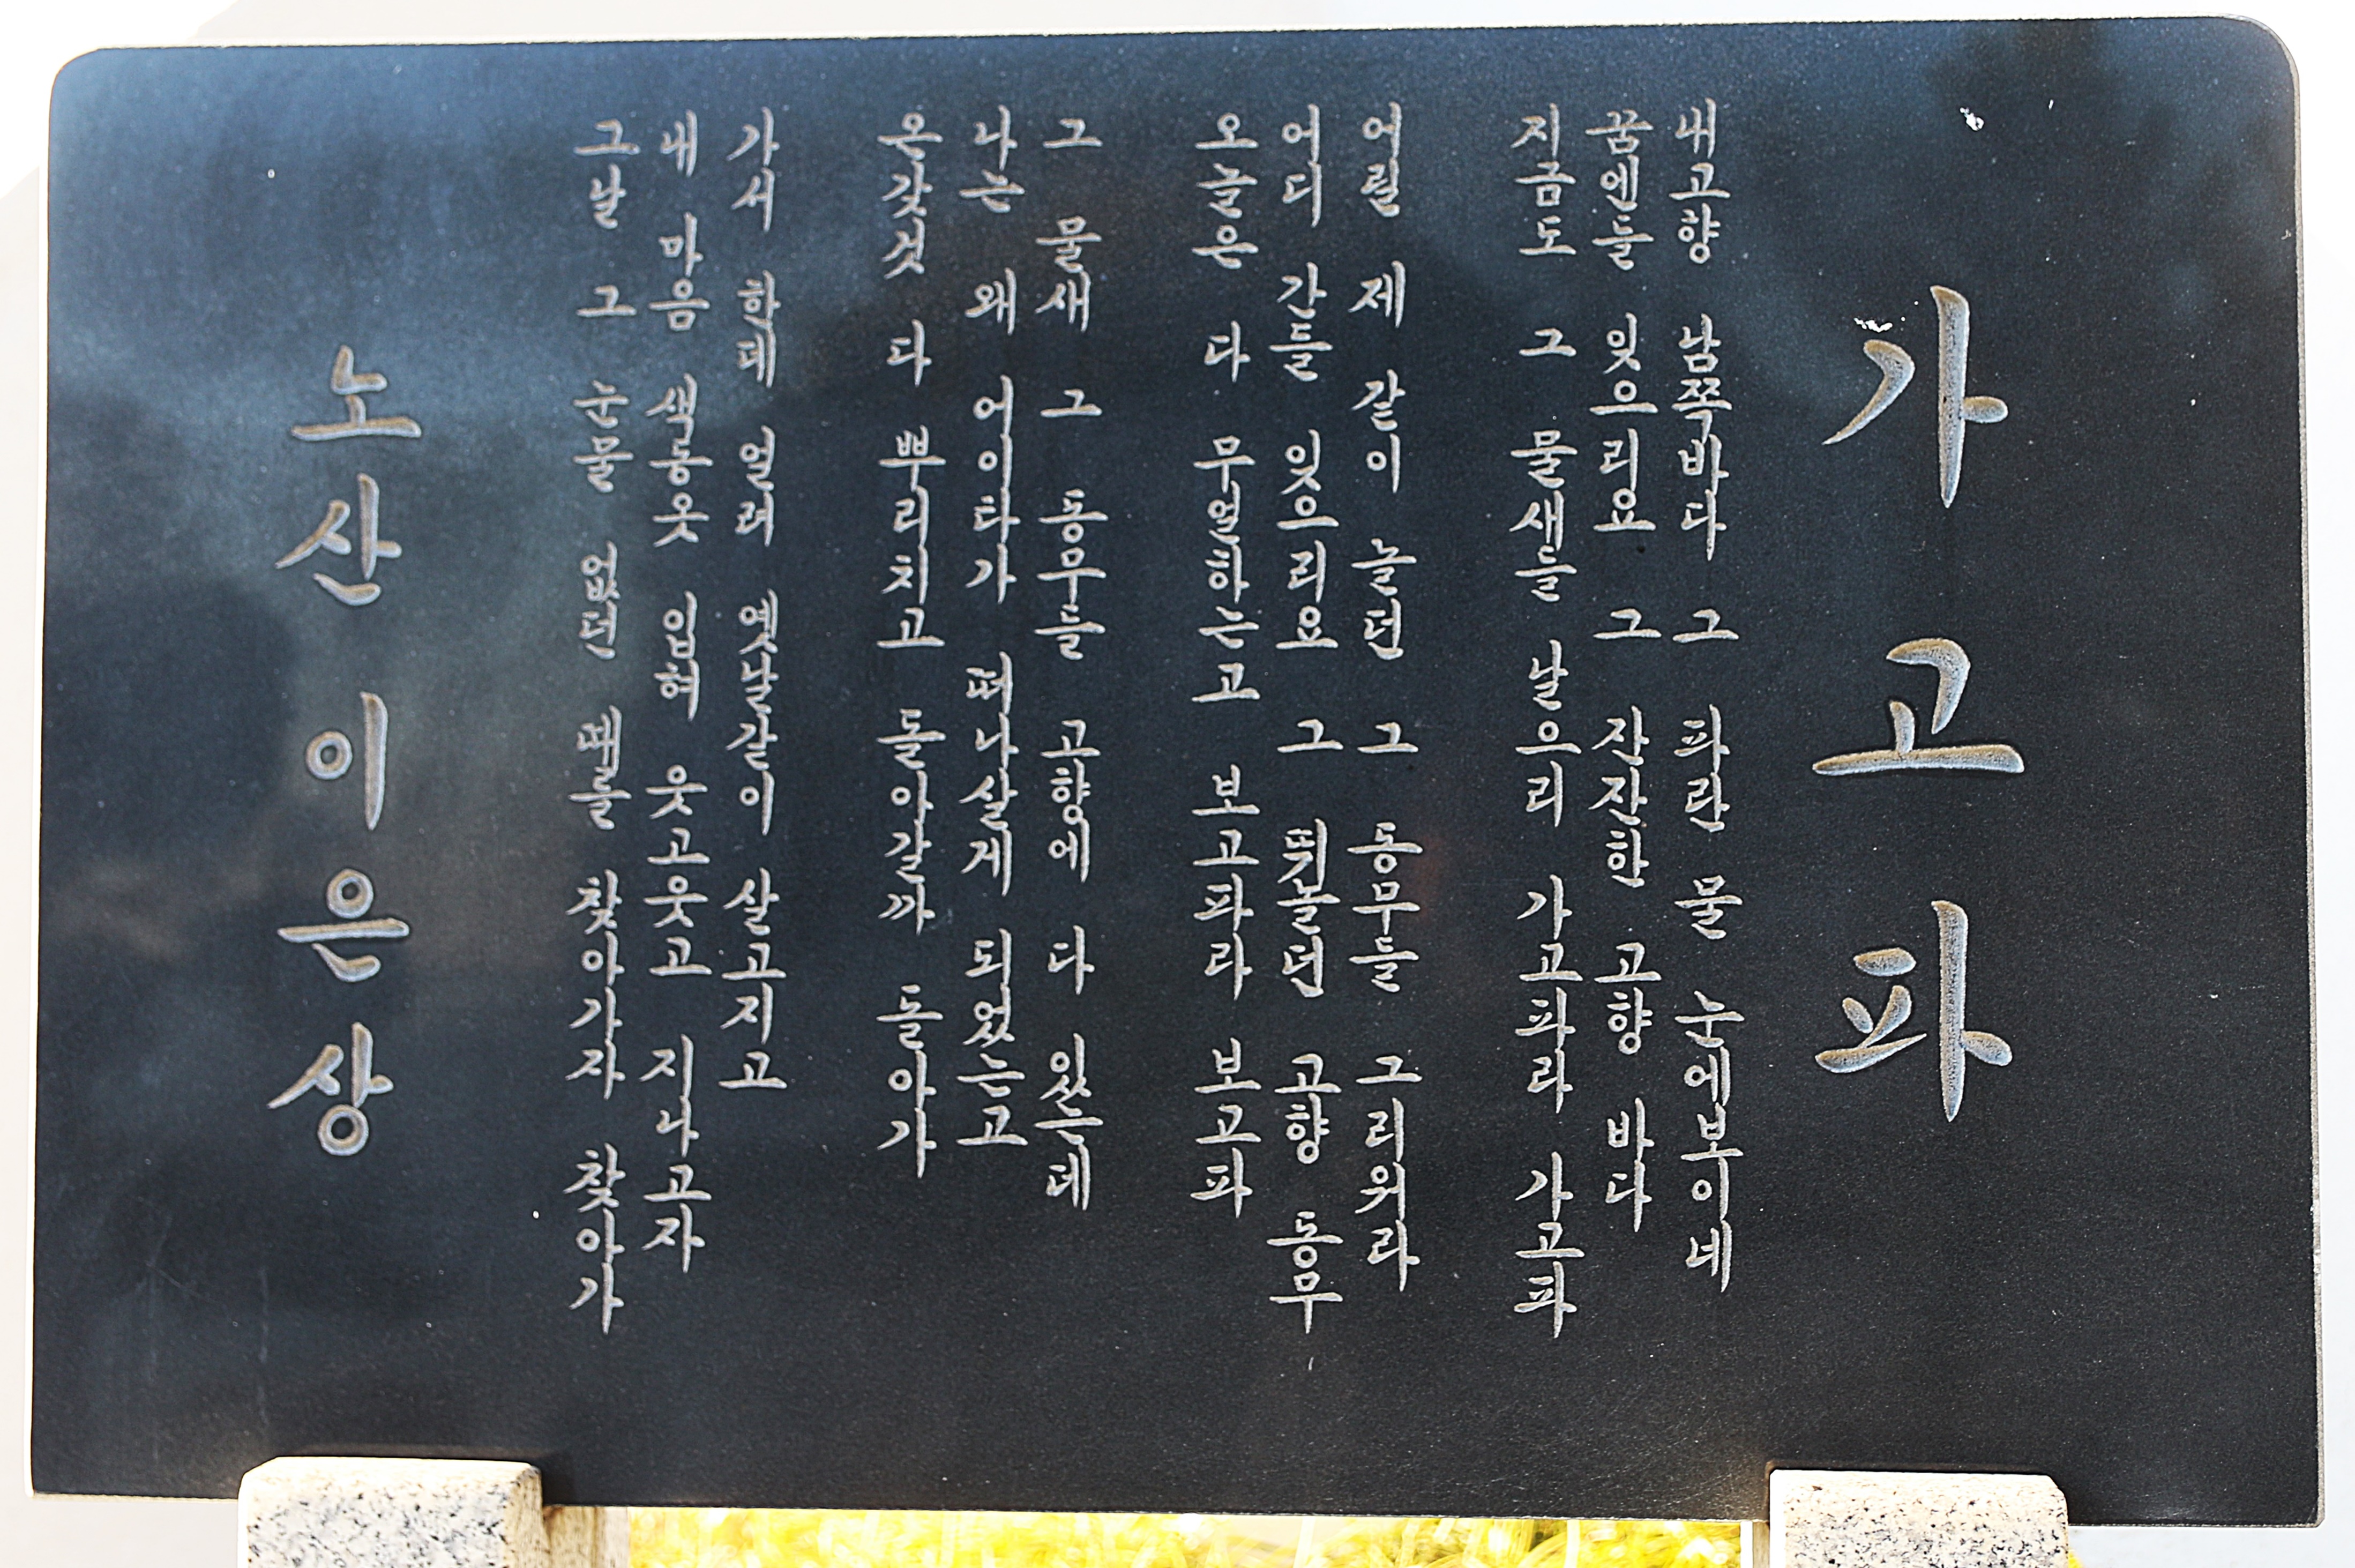 가고파
내고향 남쪽바다 그 파란 물 눈에보이네
꿈엔들 잊으리요 그 잔잔한 고향 바다
지금도 그 물새들 날으리 가고파라 가고파
어릴 제 같이 놀던 그 동무들 그리워라
어디 간들 잊으리요 그 뛰놀던 고향 동무
오늘은 다 무얼하는고 보고파라 보고파
그 물새 그 동무들 고향에 다 있는데
나는 왜 어이타가 떠나살게 되었는고
온갖것 다 뿌리치고 돌아갈까 돌아가
가서 한데 얼려 옛날같이 살고지고
내 마음 색동옷 입혀 웃고웃고 지나고자
그날 그 눈물 없던 때를 찾아가자 찾아가
노산 이은상